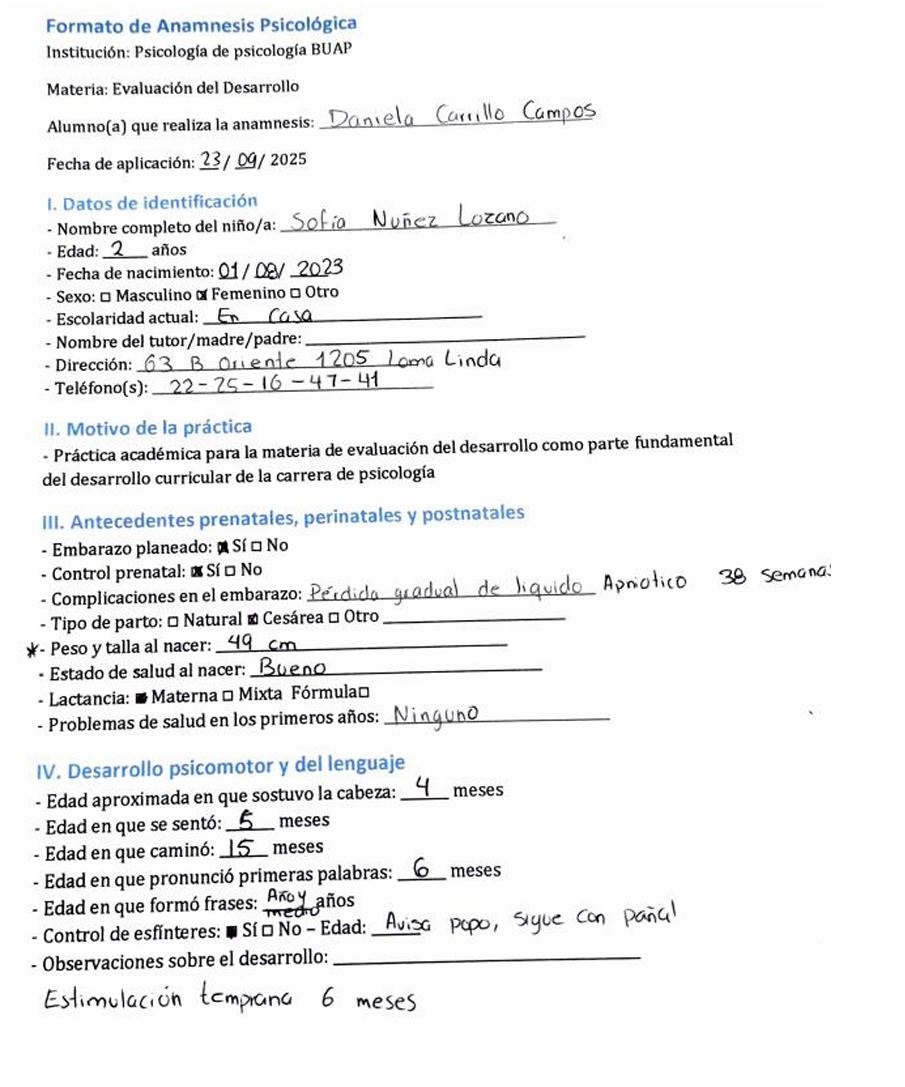 Formato de Anamnesis Psicológica
Institución: Psicología de psicología BUAP
Materia: Evaluación del Desarrollo
Alumno(a) que realiza la anamnesis: Daniela Carrillo Campos
Fecha de aplicación: 23/ 09/ 2025
I. Datos de identificación
- Nombre completo del niño/a: Sofia Nuñez Lozano
- Edad: 2 años
- Fecha de nacimiento: 01/ 08/ 2023
- Sexo: □ Masculino ☒ Femenino □ Otro
- Escolaridad actual: En casa
- Nombre del tutor/madre/padre:
- Dirección: 63 B Oriente 1205 Loma Linda
- Teléfono(s): 22-25-16-47-41
II. Motivo de la práctica
- Práctica académica para la materia de evaluación del desarrollo como parte fundamental
del desarrollo curricular de la carrera de psicología
III. Antecedentes prenatales, perinatales y postnatales
- Embarazo planeado: ☒ Sí □ No
- Control prenatal: ☒ Sí □ No
- Complicaciones en el embarazo: Pérdida gradual de liquido Apniotico 38 semanas
- Tipo de parto: □ Natural ☒ Cesárea □ Otro
*- Peso y talla al nacer: 49 cm
- Estado de salud al nacer: Bueno
- Lactancia: ■ Materna □ Mixta Fórmula□
- Problemas de salud en los primeros años: Ninguno
IV. Desarrollo psicomotor y del lenguaje
- Edad aproximada en que sostuvo la cabeza: 4 meses
- Edad en que se sentó: 5 meses
- Edad en que caminó: 15 meses
- Edad en que pronunció primeras palabras: 6 meses
- Edad en que formó frases: Año y medio años
- Control de esfínteres: ■ Sí □ No – Edad: Avisa popo, sigue con pañal
- Observaciones sobre el desarrollo:
Estimulación temprana 6 meses